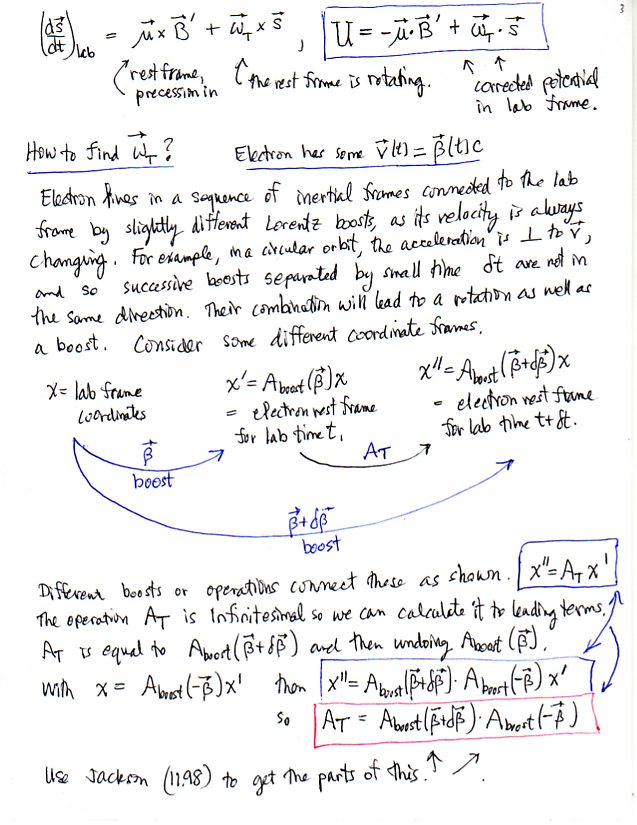 3
(ds⃗/dt)_lab = μ⃗ × B⃗' + ω⃗_T × s⃗ , U = -μ⃗·B⃗' + ω⃗_T·s⃗
rest frame, precession in
the rest frame is rotating.
corrected potential
in lab frame.
How to find ω⃗_T? Electron has some v⃗(t) = β⃗(t)c
Electron lives in a sequence of inertial frames connected to the lab
frame by slightly different Lorentz boosts, as its velocity is always
changing. For example, in a circular orbit, the acceleration is ⊥ to v⃗,
and so successive boosts separated by small time δt are not in
the same direction. Their combination will lead to a rotation as well as
a boost. Consider some different coordinate frames.
x = lab frame
coordinates
x' = A_boost(β⃗)x
= electron rest frame
for lab time t.
x'' = A_boost(β⃗+δβ⃗)x
= electron rest frame
for lab time t+δt.
β⃗
boost
A_T
β⃗+δβ⃗
boost
Different boosts or operations connect these as shown. x'' = A_T x'
The operation A_T is infinitesimal so we can calculate it to leading terms.
A_T is equal to A_boost(β⃗+δβ⃗) and then undoing A_boost(β⃗).
with x = A_boost(-β⃗)x' then x'' = A_boost(β⃗+δβ⃗)·A_boost(-β⃗) x'
so A_T = A_boost(β⃗+δβ⃗)·A_boost(-β⃗)
Use Jackson (11.98) to get the parts of this.